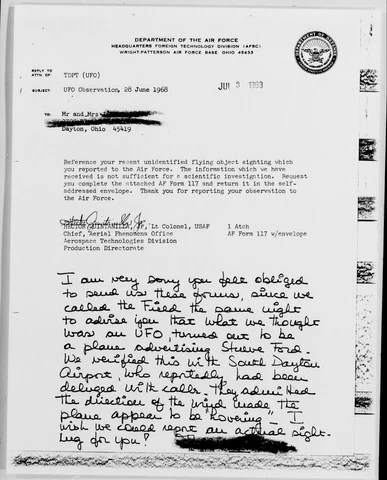 DEPARTMENT OF THE AIR FORCE
HEADQUARTERS FOREIGN TECHNOLOGY DIVISION (AFSC)
WRIGHT-PATTERSON AIR FORCE BASE OHIO 45433
REPLY TO
ATTN OF: TDPT (UFO)
JUL 3 1968
SUBJECT: UFO Observation, 28 June 1968
TO: Mr and Mrs
Dayton, Ohio 45419
Reference your recent unidentified flying object sighting which
you reported to the Air Force. The information which we have
received is not sufficient for a scientific investigation. Request
you complete the attached AF Form 117 and return it in the self-
addressed envelope. Thank you for reporting your observation to
the Air Force.
HECTOR QUINTANILLA, Jr, Lt Colonel, USAF 1 Atch
Chief, Aerial Phenomena Office AF Form 117 w/envelope
Aerospace Technologies Division
Production Directorate
I am very sorry you felt obliged
to send us these forms, since we
called the Field the same night
to advise you that what we thought
was an UFO, turned out to be
a plane advertising Steve Ford.
We verified this with South Dayton
Airport, who reportedly had been
deluged with calls. They admitted
the direction of the wind made the
plane appear to be "hovering". I
wish we could report an actual sight-
ing for you!